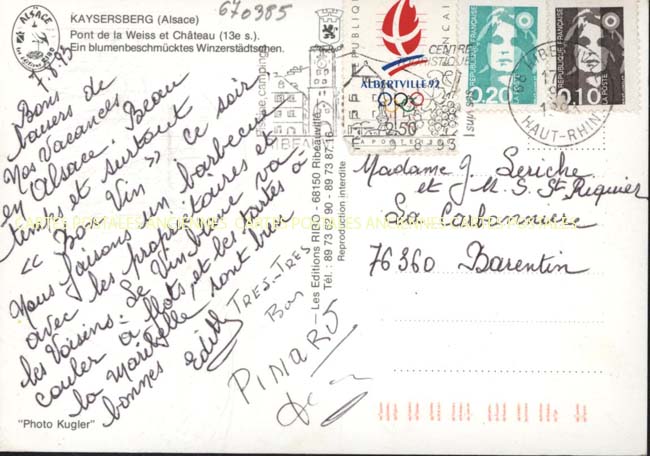 670385
KAYSERSBERG (Alsace)
Pont de la Weiss et Château (13e s.).
Ein blumenbeschmücktes Winzerstädtchen.
ALSACE
7.8.93
Bons de
baisers de
Nos Vacances
en Alsace. Beau
temps et surtout
« Bon Vin » ce soir
Nous faisons un barbecue
avec les propriétaires et
les Voisins. Le Vin blanc va
couler à flots, et les tartes à
la Mirabelle sont très
bonnes Edith
TRES-TRES
Bon
PINARD
"Photo Kugler"
— Les Editions RIBO - 68150 Ribeauvillé
Tél. : 89 73 62 90 - 89 73 87 16
Reproduction interdite
RÉPUBLIQUE FRANÇAISE
ALBERTVILLE 92
2,50
LA POSTE
REPUBLIQUE FRANÇAISE
0,20
REPUBLIQUE FRANÇAISE
LA POSTE
0,10
CENTRE
TOURISTIQUE
camping
RIBEAU
68 RIBEAUVILLE
HAUT-RHIN
9-8-93
Madame J. Seriche
et M. S. St Riquier
La Cabonnière
76360 Barentin
CARTES POSTALES ANCIENNES CARTES POSTALES ANCIENNES CARTES POSTALES